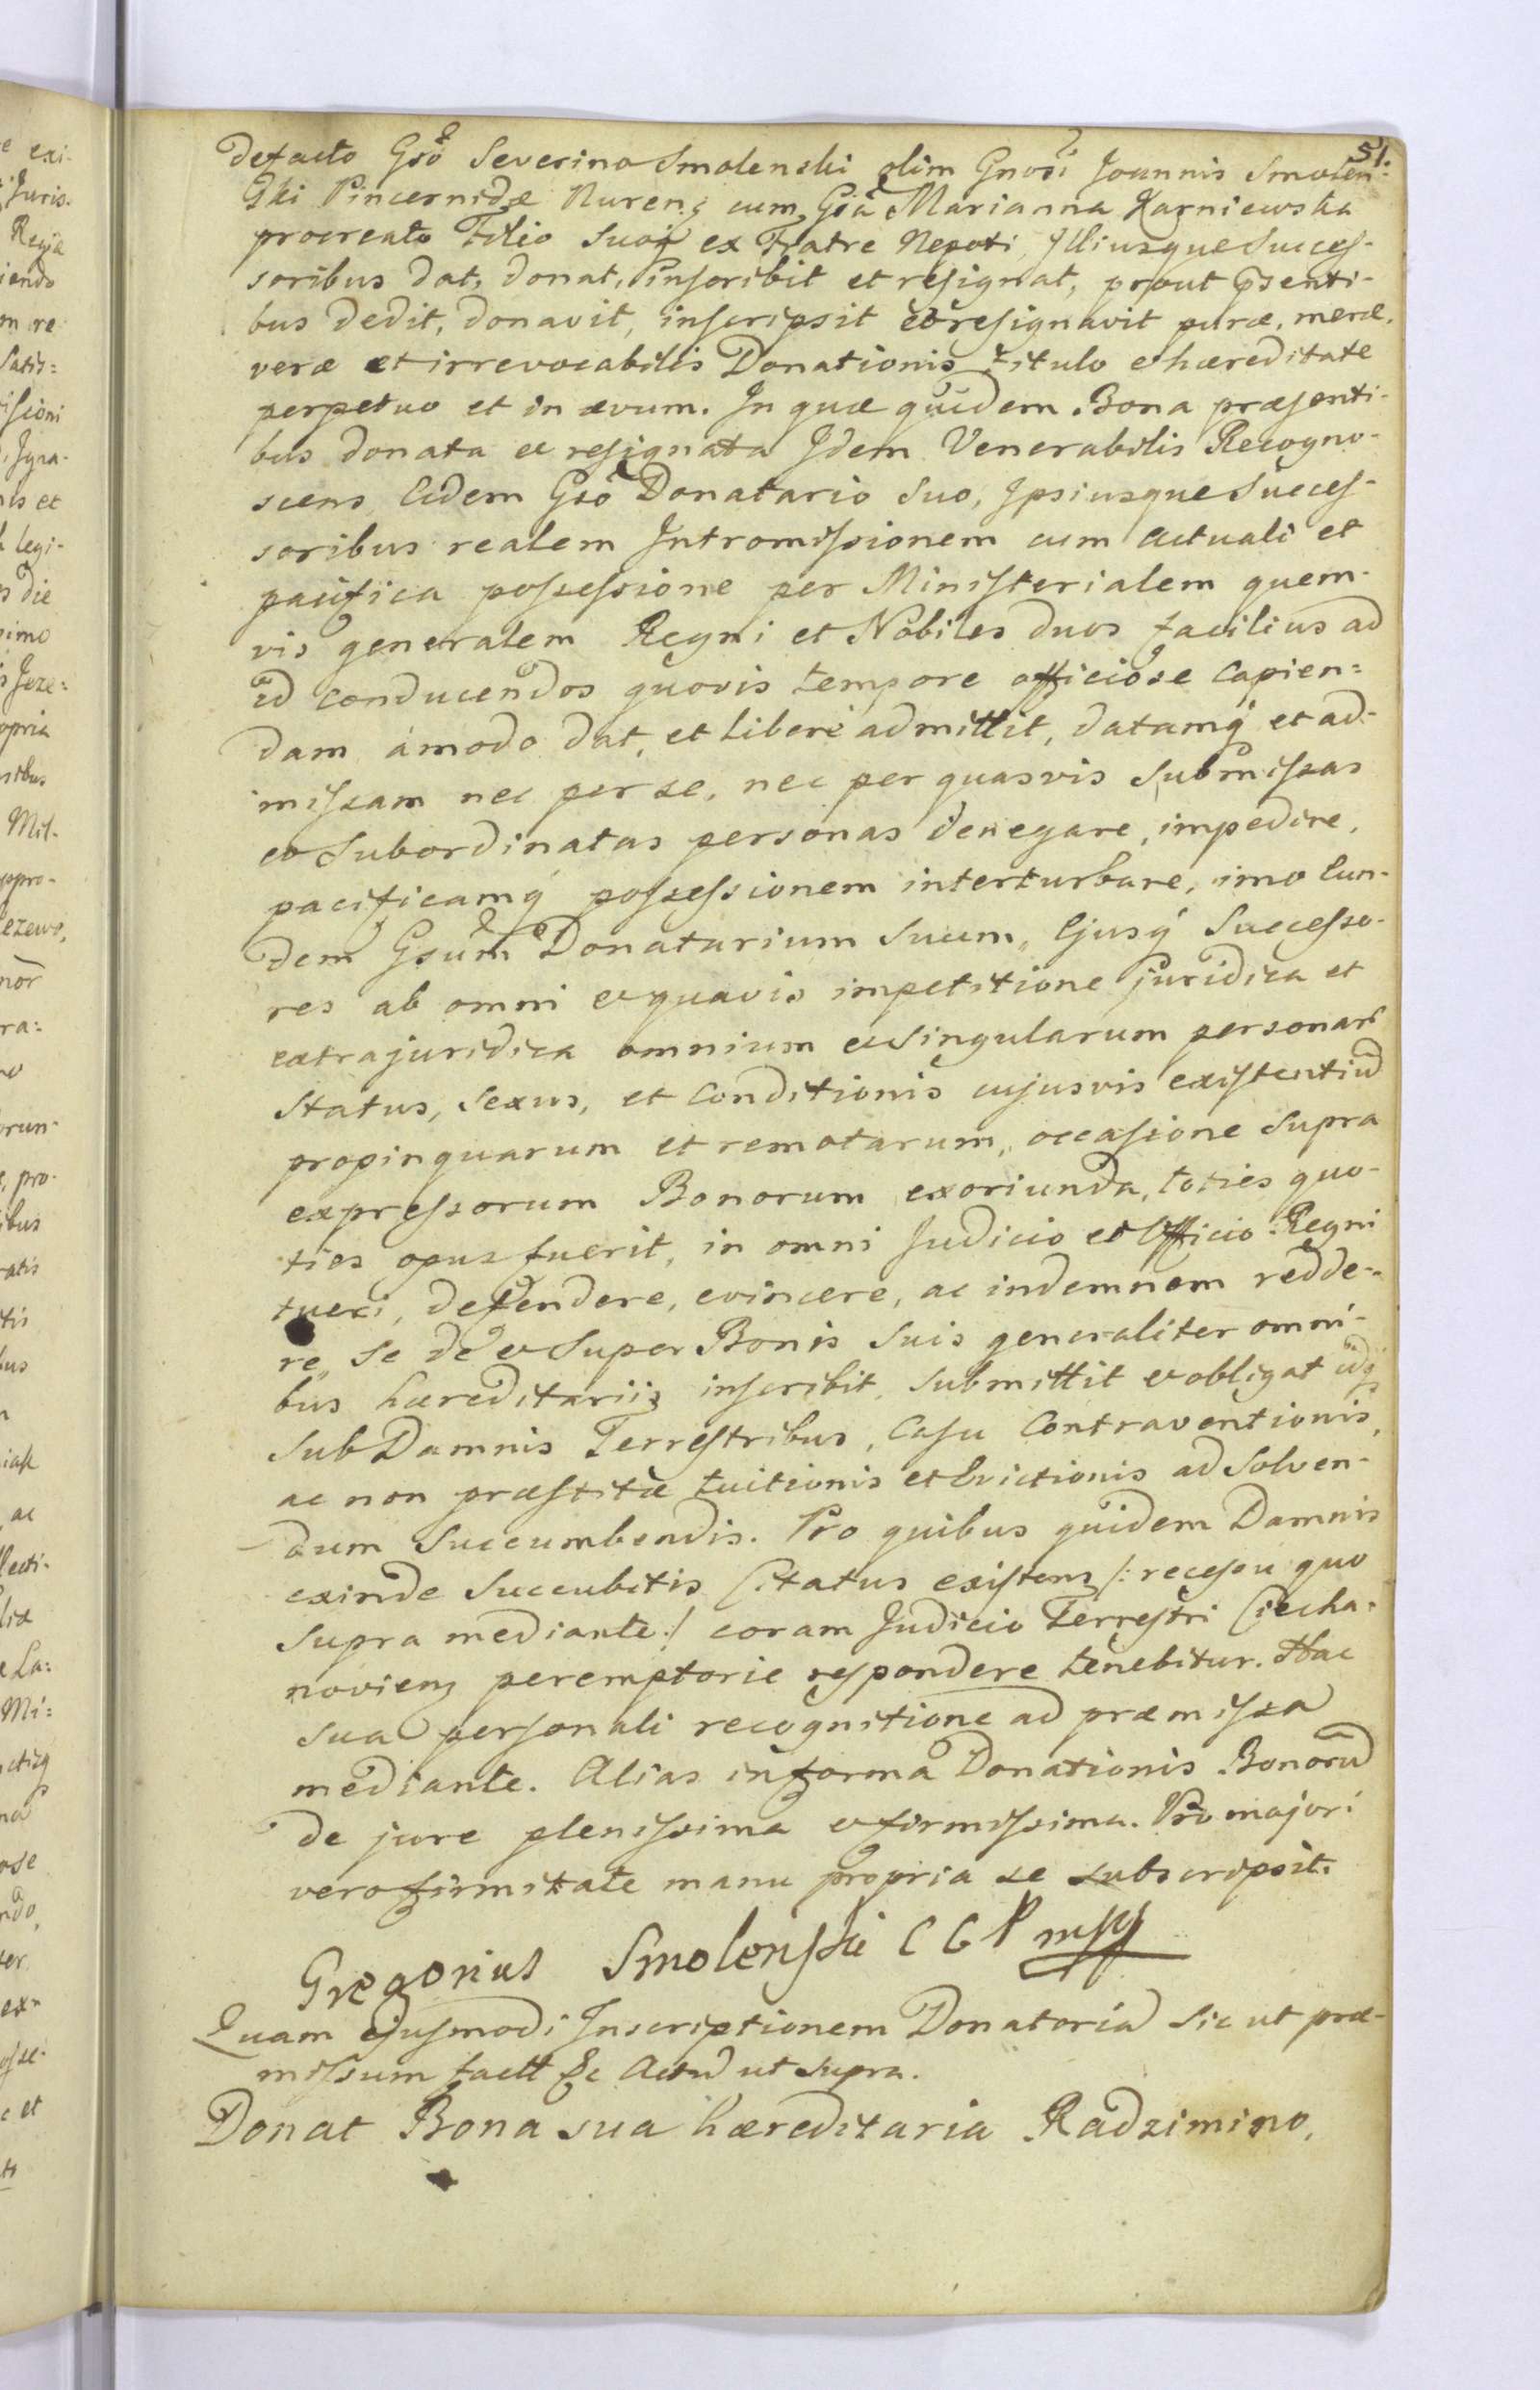 51.
defacto Gsõ Severino Smolenski olim Gnosi Joannis Smolen-
ski Pincernidæ Nurenʒ cum Gsâ Marianna Karniewska
procreato Filio suoq̃ ex Fratre Nepoti, Illiusque Succes-
soribus dat, donat, inscribit et resignat, prout p̃senti-
bus dedit, donavit, inscripsit et resignavit puræ, meræ,
veræ et irrevocabilis Donationis titulo et hæreditate
perpetuo et in ævum. In quæ quidem Bona præsenti-
bus donata et resignata Idem Venerabilis Recogno-
scens Eidem Gsõ Donatario suo, Ipsiusque Succes-
soribus realem Intromissionem cum actuali et
pacifica possessione per Ministerialem quem-
vis generalem Regni et Nobiles duos facilius ad
id conducendos quovis tempore officiose capien=
dam ámodo dat, et liberè admittit, datamq́ et ad-
missam nec per se, nec per quasvis submissas
et subordinatas personas denegare, impedire,
pacificamq́ possessionem interturbare, imo Eun-
dem Gsum̃ Donatarium suum, Ejusq́ Successo-
res ab omni et quavis impetitione juridica et
extrajuridica omnium et singularum personar̃
status, sexus, et conditionis cujusvis existentiũ
propinquarum et remotarum, occasione supra
expressorum Bonorum exoriunda, toties quo-
ties opus fuerit, in omni Judicio et Officio Regni
tueri, defendere, evincere, ac indemnem redde-
re, se de et super Bonis suis generaliter omni-
bus hæreditariis inscribit, submittit et obligat idq́
sub Damnis Terrestribus, Casu Contraventionis,
ac non præstitæ tuitionis et Evictionis ad solven-
dum succumbendis. Pro quibus quidem Damnis
exinde succubitis Citatus existens /: recessu quo
supra mediante :/ coram Judicio Terrestri Ciecha-
novienʒ peremptorie respondere tenebitur. Hac
sua personali recognitione ad præmissa
mediante. Alias in forma Donationis Bonorũ
de jure plenissima et firmissima. Pro majori
vero firmitate manu propria se subscripsit.
Gregorius Smolenski C G P mpp
Quam ejusmodi Inscriptionem Donatoriã sic ut præ-
missum factt &c Actũ ut supra.
Donat Bona sua hæreditaria Radzimino,